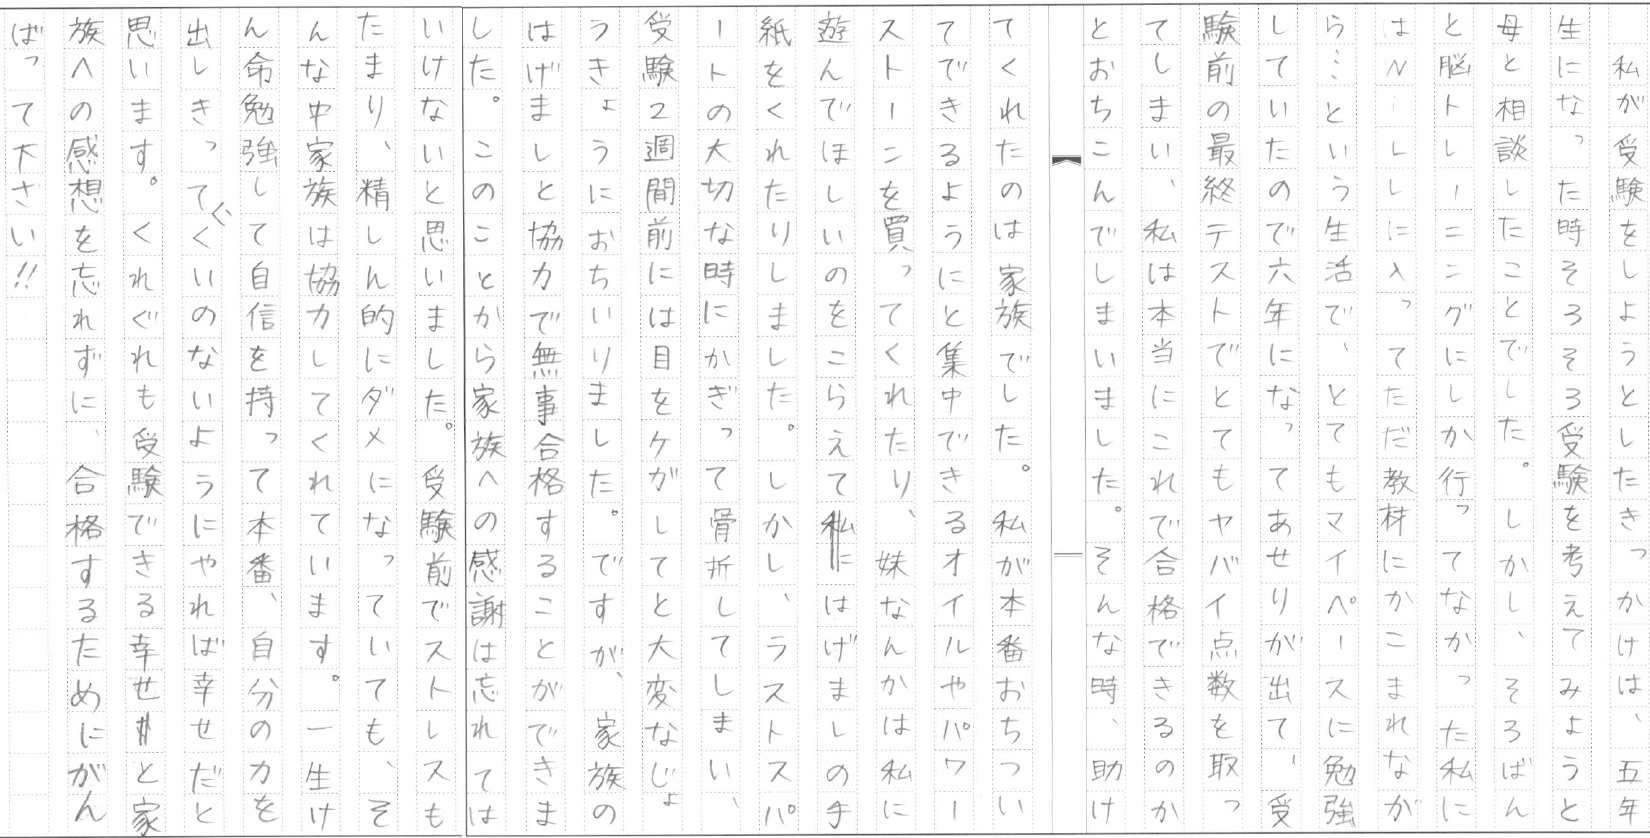 私が受験をしようとしたきっかけは、五年
生になった時そろそろ受験を考えてみようと
母と相談したことでした。しかし、そろばん
と脳トレーニングにしか行ってなかった私に
はN…に入ってただ教材にかこまれなが
ら…という生活で、とてもマイペースに勉強
していたので六年になってあせりが出て、受
験前の最終テストでとてもヤバイ点数を取っ
てしまい、私は本当にこれで合格できるのか
とおちこんでしまいました。そんな時、助け
てくれたのは家族でした。私が本番おちつい
てできるようにと集中できるオイルやパワー
ストーンを買ってくれたり、妹なんかは私に
遊んでほしいのをこらえて私にはげましの手
紙をくれたりしました。しかし、ラストスパ
ートの大切な時にかぎって骨折してしまい、
受験2週間前には目をケガしてと大変なじょ
うきょうにおちいりました。ですが、家族の
はげましと協力で無事合格することができま
した。このことから家族への感謝は忘れては
いけないと思いました。受験前でストレスも
たまり、精しん的にダメになっていても、そ
んな中家族は協力してくれています。一生け
ん命勉強して自信を持って本番、自分の力を
出しきってくいのないようにやれば幸せだと
思います。くれぐれも受験できる幸せと家
族への感想を忘れずに、合格するためにがん
ばって下さい!!